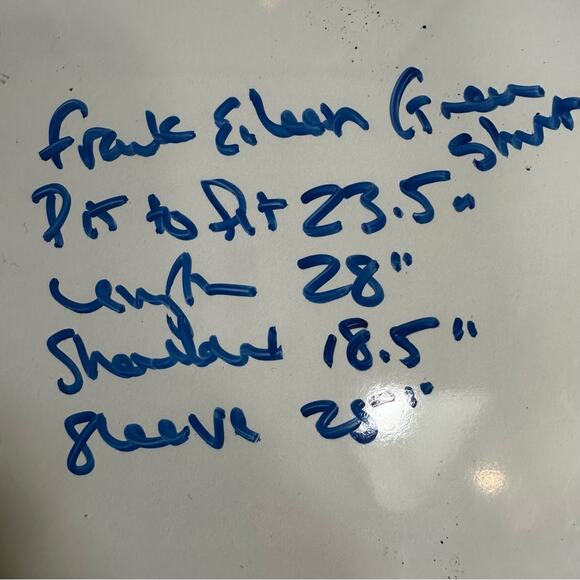 Frank Eileen Green
Shirt
Pit to Pit 23.5"
Length 28"
Shoulder 18.5"
Sleeve 25"